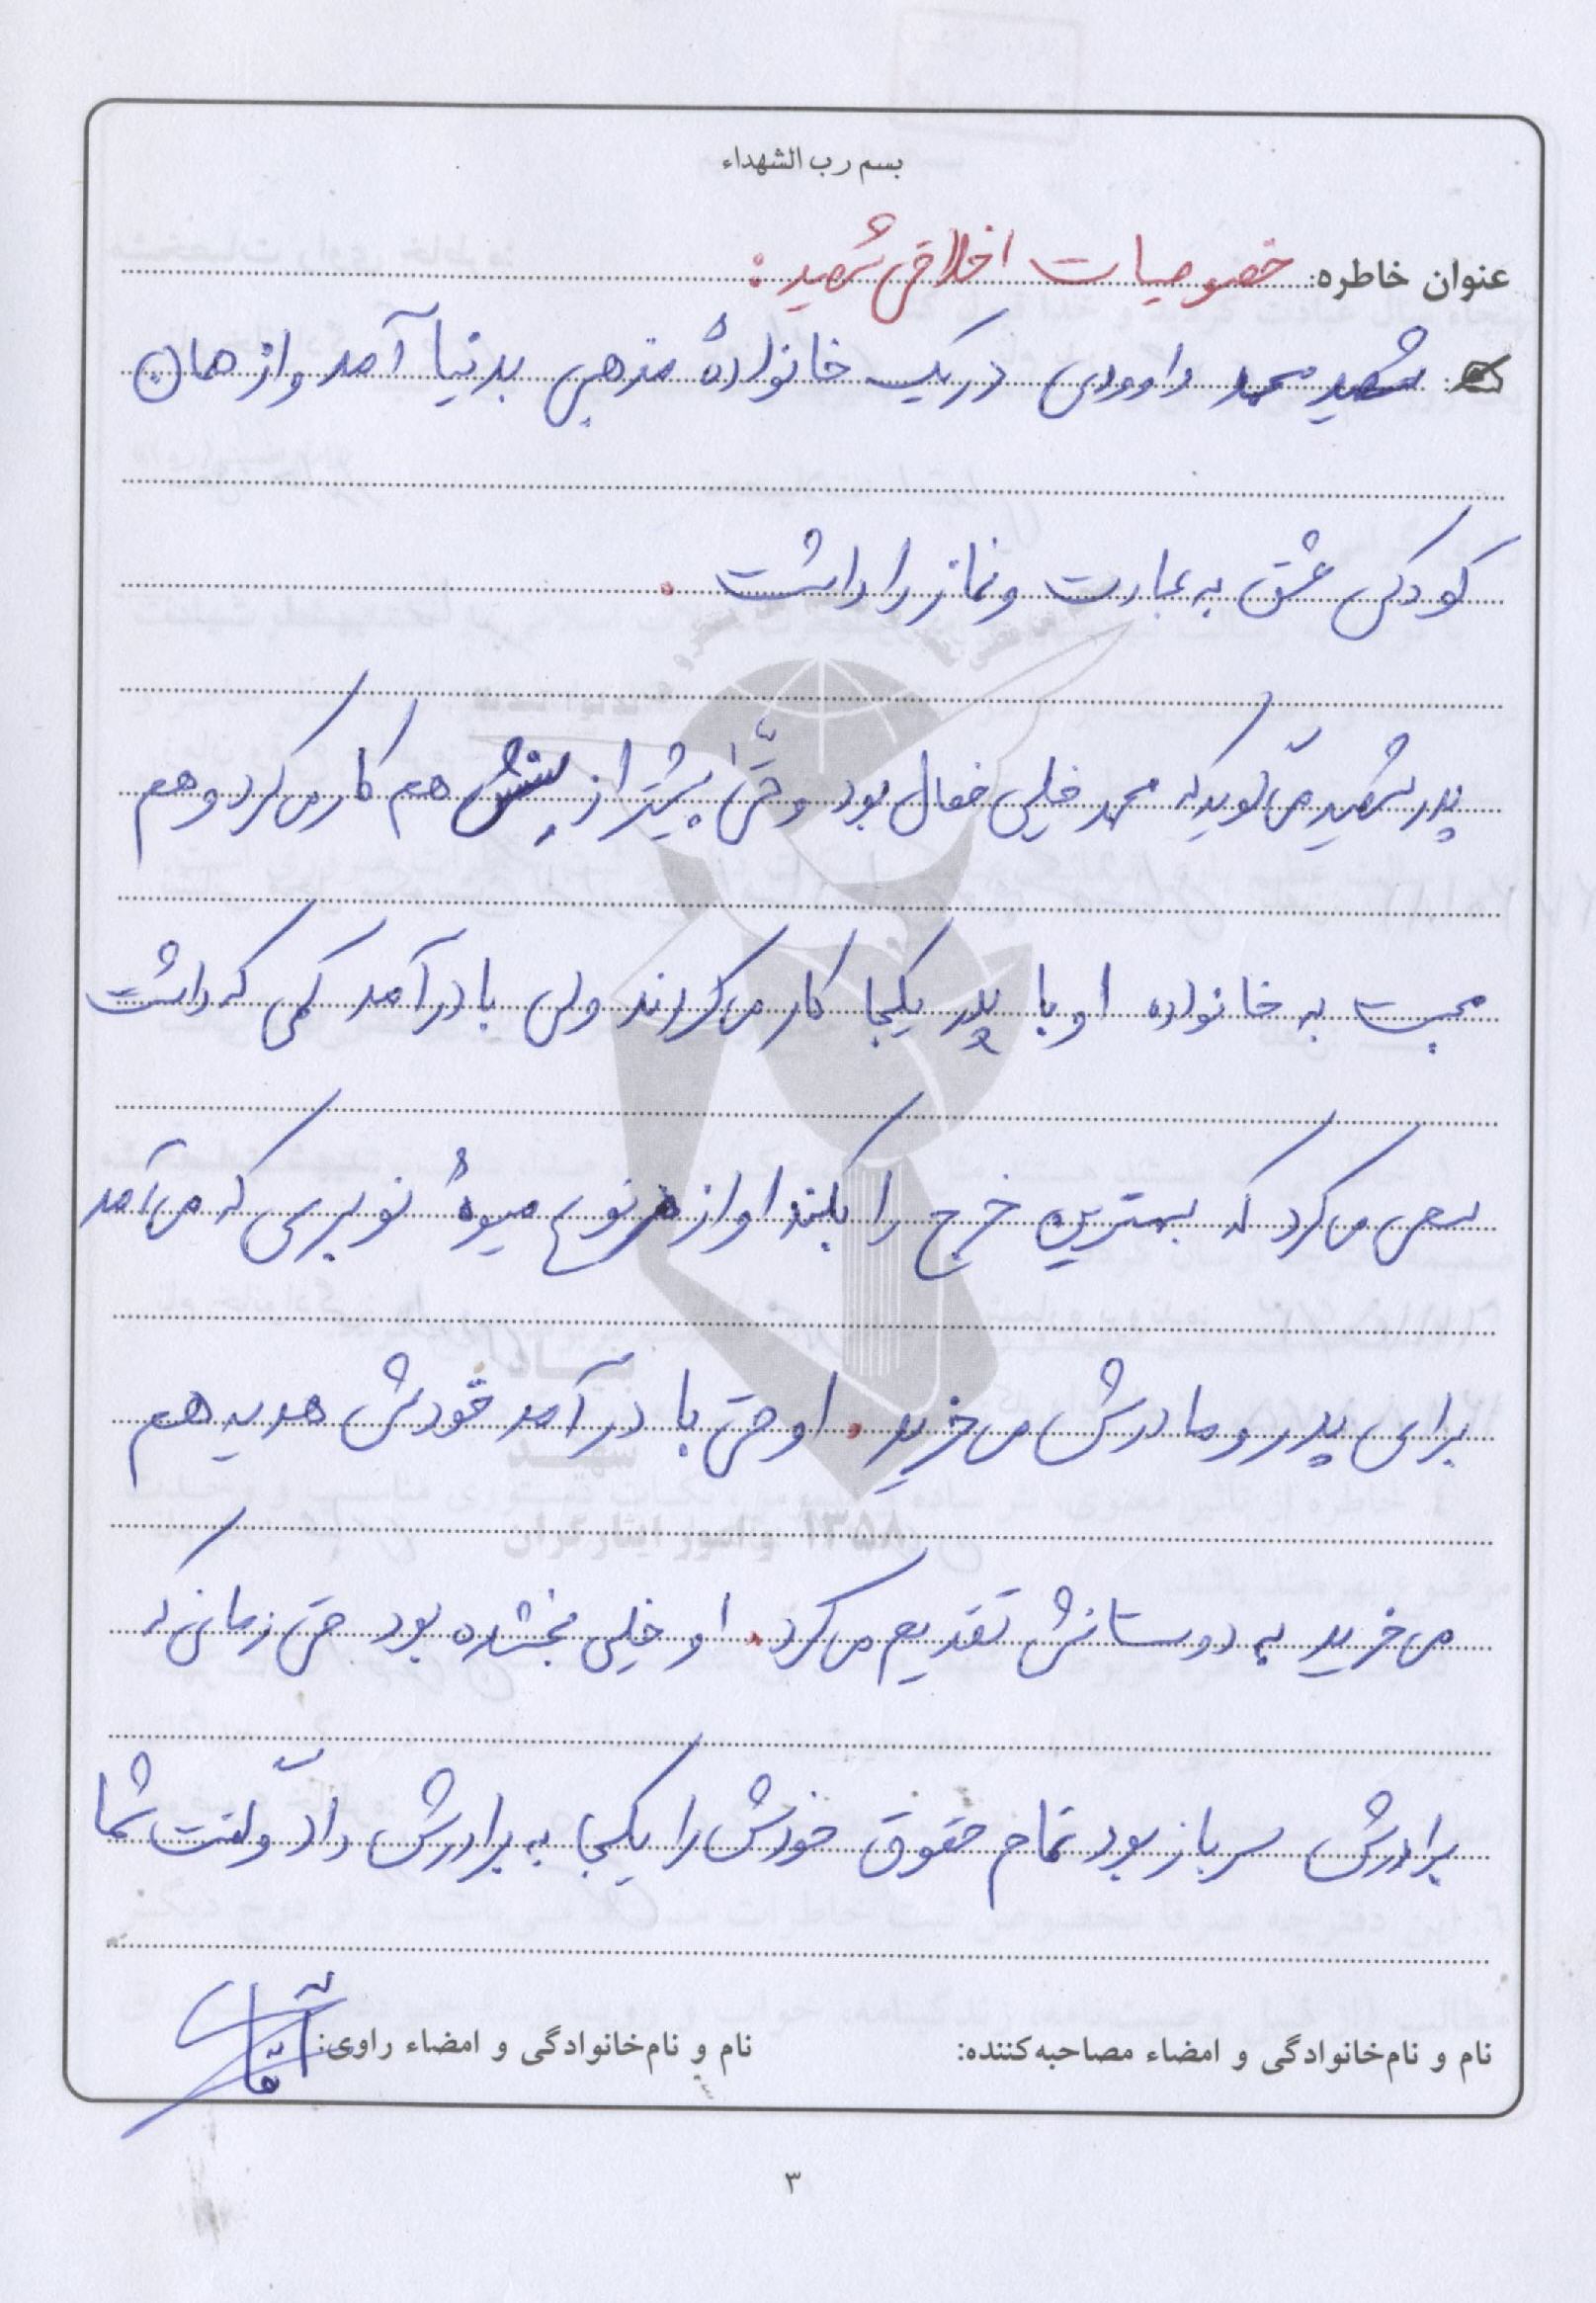 بسم رب الشهداء
عنوان خاطره: خصوصیات اخلاقی شهید:
شهید محمد داوودی در یک خانوادهٔ مذهبی بدنیا آمد و از همان
کودکی عشق به عبادت و نماز را داشت.
پدر شهید می‌گوید که محمد خیلی فعال بود و حتّی بیشتر از سنش هم کار می‌کرد و هم
محبت به خانواده او با پدر یکجا کار می‌کردند ولی با درآمد کمی که داشت
سعی می‌کرد که بهترین خرج را بکند او از هر نوع میوهٔ نوبری که می‌آمد
برای پدر و مادرش می‌خرید. او حتی با درآمد خودش هدیه هم
می‌خرید به دوستانش تقدیم می‌کرد. او خیلی بخشنده بود حتی زمانی که
برادرش سرباز بود تمام حقوق خودش را یکجا به برادرش داد و گفت شما
نام و نام‌خانوادگی و امضاء مصاحبه‌کننده: نام و نام‌خانوادگی و امضاء راوی:
۳
بنیاد
شهید
و امور ایثارگران ۱۳۵۸